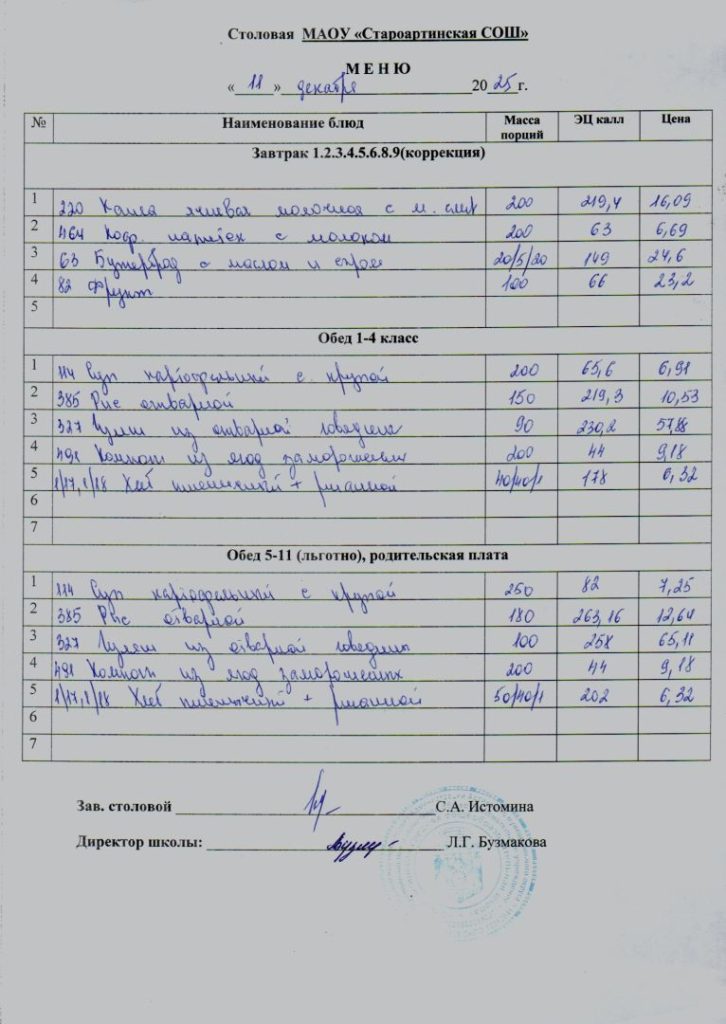 Столовая МАОУ «Староартинская СОШ»
М Е Н Ю
« 11 » декабря 2025 г.
№ Наименование блюд Масса порций ЭЦ калл Цена
Завтрак 1.2.3.4.5.6.8.9(коррекция)
1 220 Каша ячневая молочная с м. слив 200 219,4 16,09
2 464 Коф. напиток с молоком 200 63 6,69
3 63 Бутерброд с маслом и сыром 20/5/20 149 24,6
4 82 Фрукт 100 66 23,2
5
Обед 1-4 класс
1 114 Суп картофельный с крупой 200 65,6 6,91
2 385 Рис отварной 150 219,3 10,53
3 327 Гуляш из отварной говядины 90 230,2 57,88
4 491 Компот из ягод замороженных 200 44 9,18
5 1/17,1/18 Хлеб пшеничный + ржаной 40/40/1 178 6,32
6
7
Обед 5-11 (льготно), родительская плата
1 114 Суп картофельный с крупой 250 82 7,25
2 385 Рис отварной 180 263,16 12,64
3 327 Гуляш из отварной говядины 100 258 65,11
4 491 Компот из ягод замороженных 200 44 9,18
5 1/17,1/18 Хлеб пшеничный + ржаной 50/40/1 202 6,32
6
7
Зав. столовой С.А. Истомина
Директор школы: Л.Г. Бузмакова